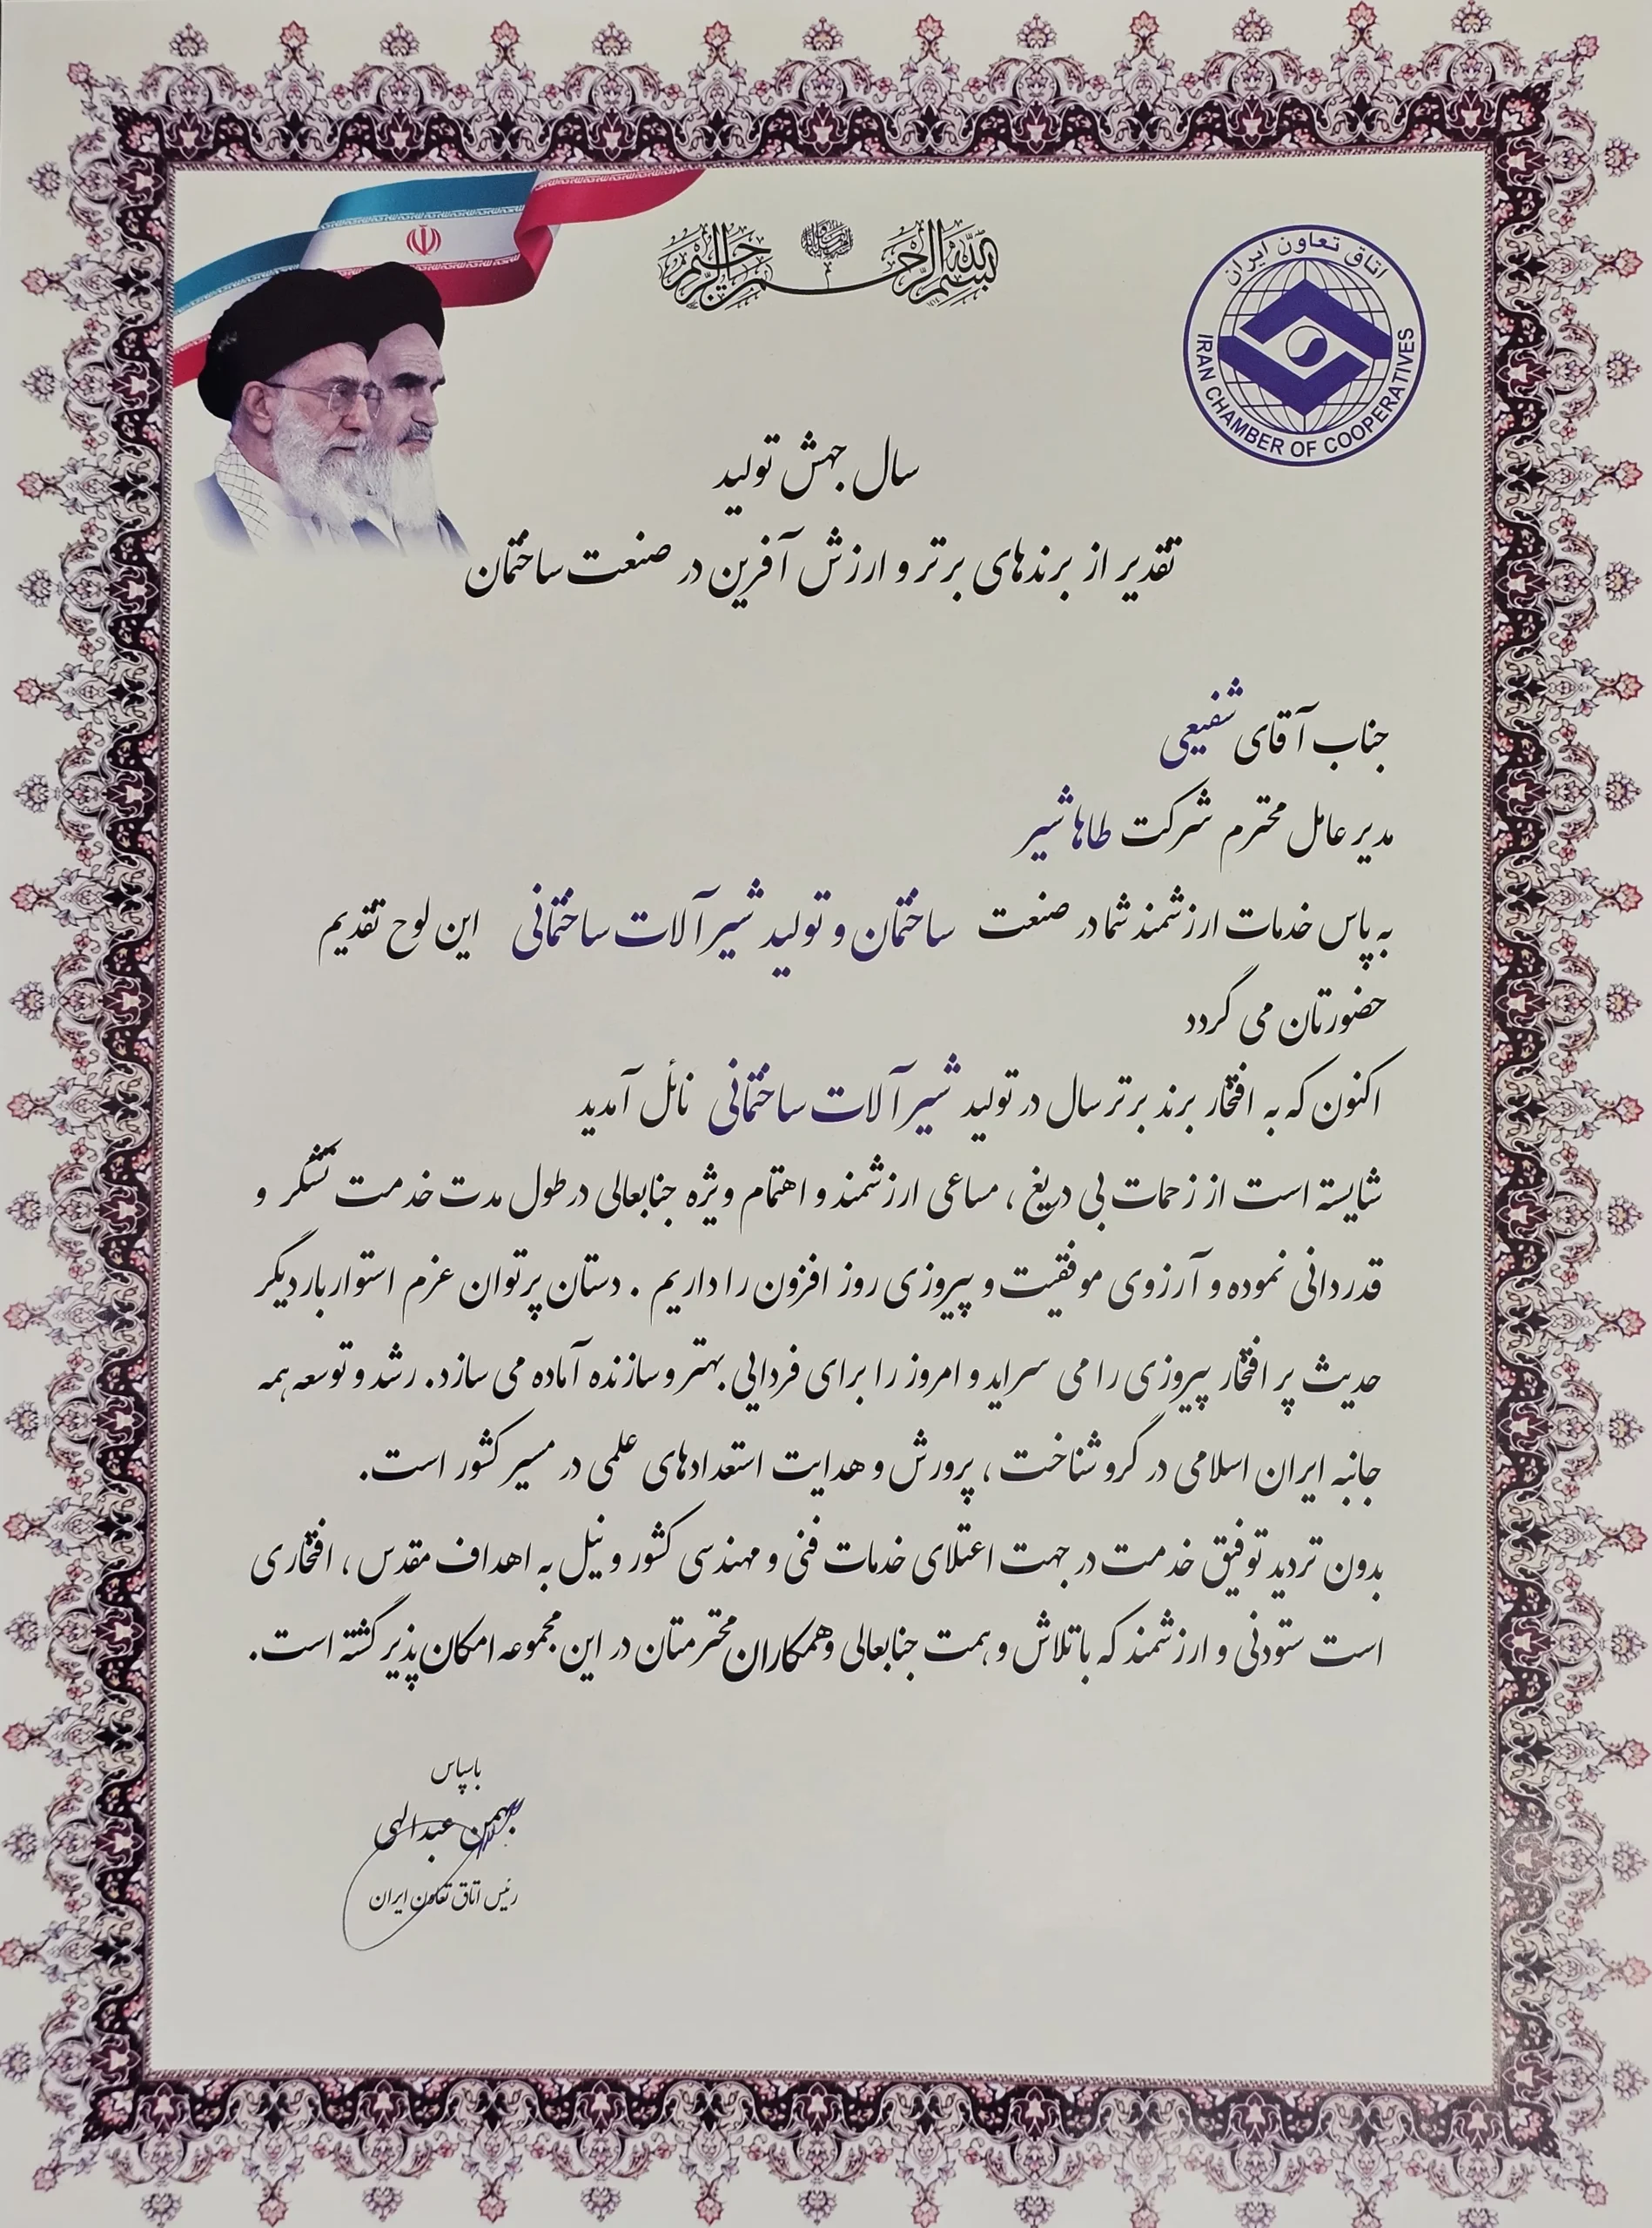 بسم الله الرحمن الرحیم
اتاق تعاون ایران
IRAN CHAMBER OF COOPERATIVES
سال جهش تولید
تقدیر از برندهای برتر و ارزش آفرین در صنعت ساختمان
جناب آقای شفیعی
مدیر عامل محترم شرکت طاها شیر
به پاس خدمات ارزشمند شما در صنعت ساختمان و تولید شیرآلات ساختمانی این لوح تقدیم
حضورتان می گردد
اکنون که به افتخار برند برتر سال در تولید شیرآلات ساختمانی نائل آمدید
شایسته است از زحمات بی دریغ ، مساعی ارزشمند و اهتمام ویژه جنابعالی در طول مدت خدمت تشکر و
قدردانی نموده و آرزوی موفقیت و پیروزی روز افزون را داریم . دستان پرتوان عزم استوار بار دیگر
حدیث پر افتخار پیروزی را می سراید و امروز را برای فردایی بهتر و سازنده آماده می سازد. رشد و توسعه همه
جانبه ایران اسلامی در گرو شناخت ، پرورش و هدایت استعدادهای علمی در مسیر کشور است.
بدون تردید توفیق خدمت در جهت اعتلای خدمات فنی و مهندسی کشور و نیل به اهداف مقدس ، افتخاری
است ستودنی و ارزشمند که با تلاش و همت جنابعالی و همکاران محترمتان در این مجموعه امکان پذیر گشته است.
باسپاس
بهمن عبدالهی
رئیس اتاق تعاون ایران